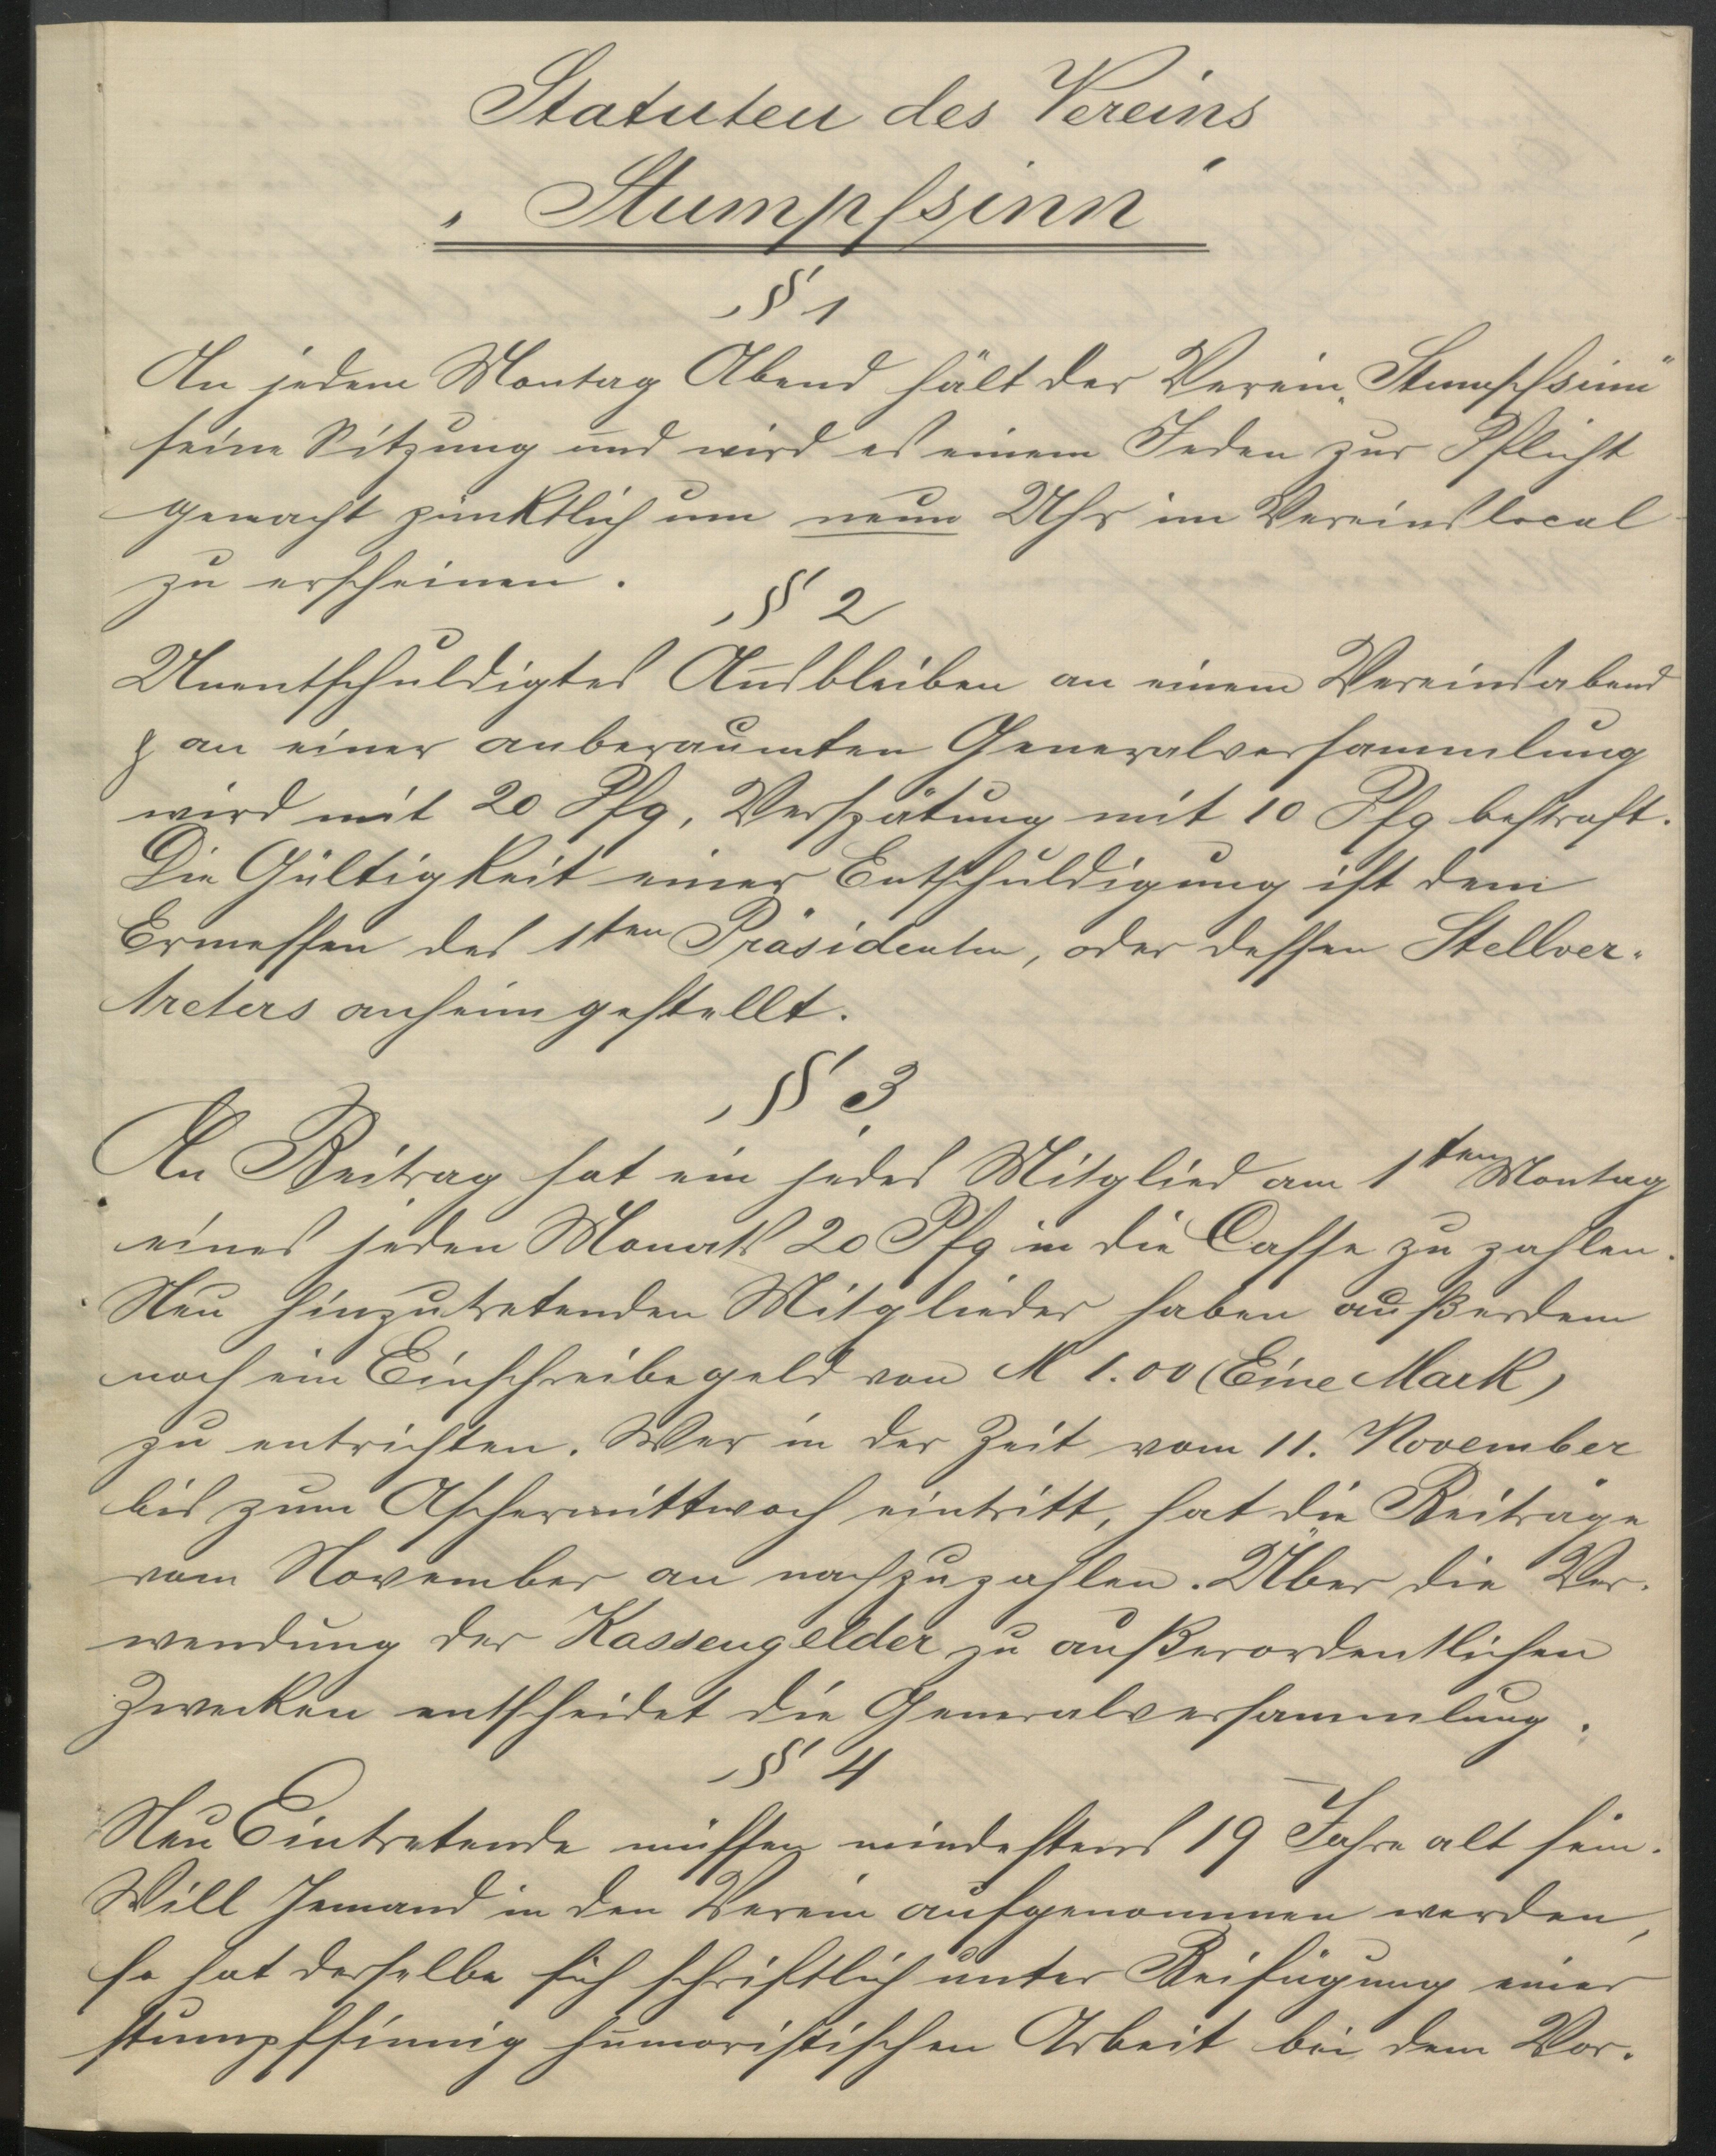 Statuten des Vereins
„Stumpfsinn“
§ 1
An jedem Montag Abend hält der Verein „Stumpfsinn“
seine Sitzung und wird es einem Jeden zur Pflicht
gemacht pünktlich um neun Uhr im Vereinslocal
zu erscheinen.
§ 2
Unentschuldigtes Ausbleiben an einem Vereinsabend
an einer anberaumten Generalversammlung
wird mit 20 Pfg, Verspätung mit 10 Pfg bestraft.
Die Gültigkeit einer Entschuldigung ist dem
Ermessen des 1ten Präsidenten, oder dessen Stellver-
treters anheimgestellt.
§ 3
An Beitrag hat ein jedes Mitglied am 1ten Montag
eines jeden Monats 20 Pfg in die Casse zu zahlen.
Neu hinzutretenden Mitglieder haben außerdem
noch ein Einschreibegeld von M 1.00 (Eine Mark)
zu entrichten. Wer in der Zeit vom 11. November
bis zum Aschermittwoch eintritt, hat die Beiträge
vom November an nachzuzahlen. Über die Ver-
wendung der Kassengelder zu außerordentlichen
Zwecken entscheidet die Generalversammlung.
§ 4
Neu Eintretende müssen mindestens 19 Jahre alt sein.
Will Jemand in den Verein aufgenommen werden,
so hat derselbe sich schriftlich unter Beifügung einer
stumpfsinnig humoristischen Arbeit bei dem Vor-